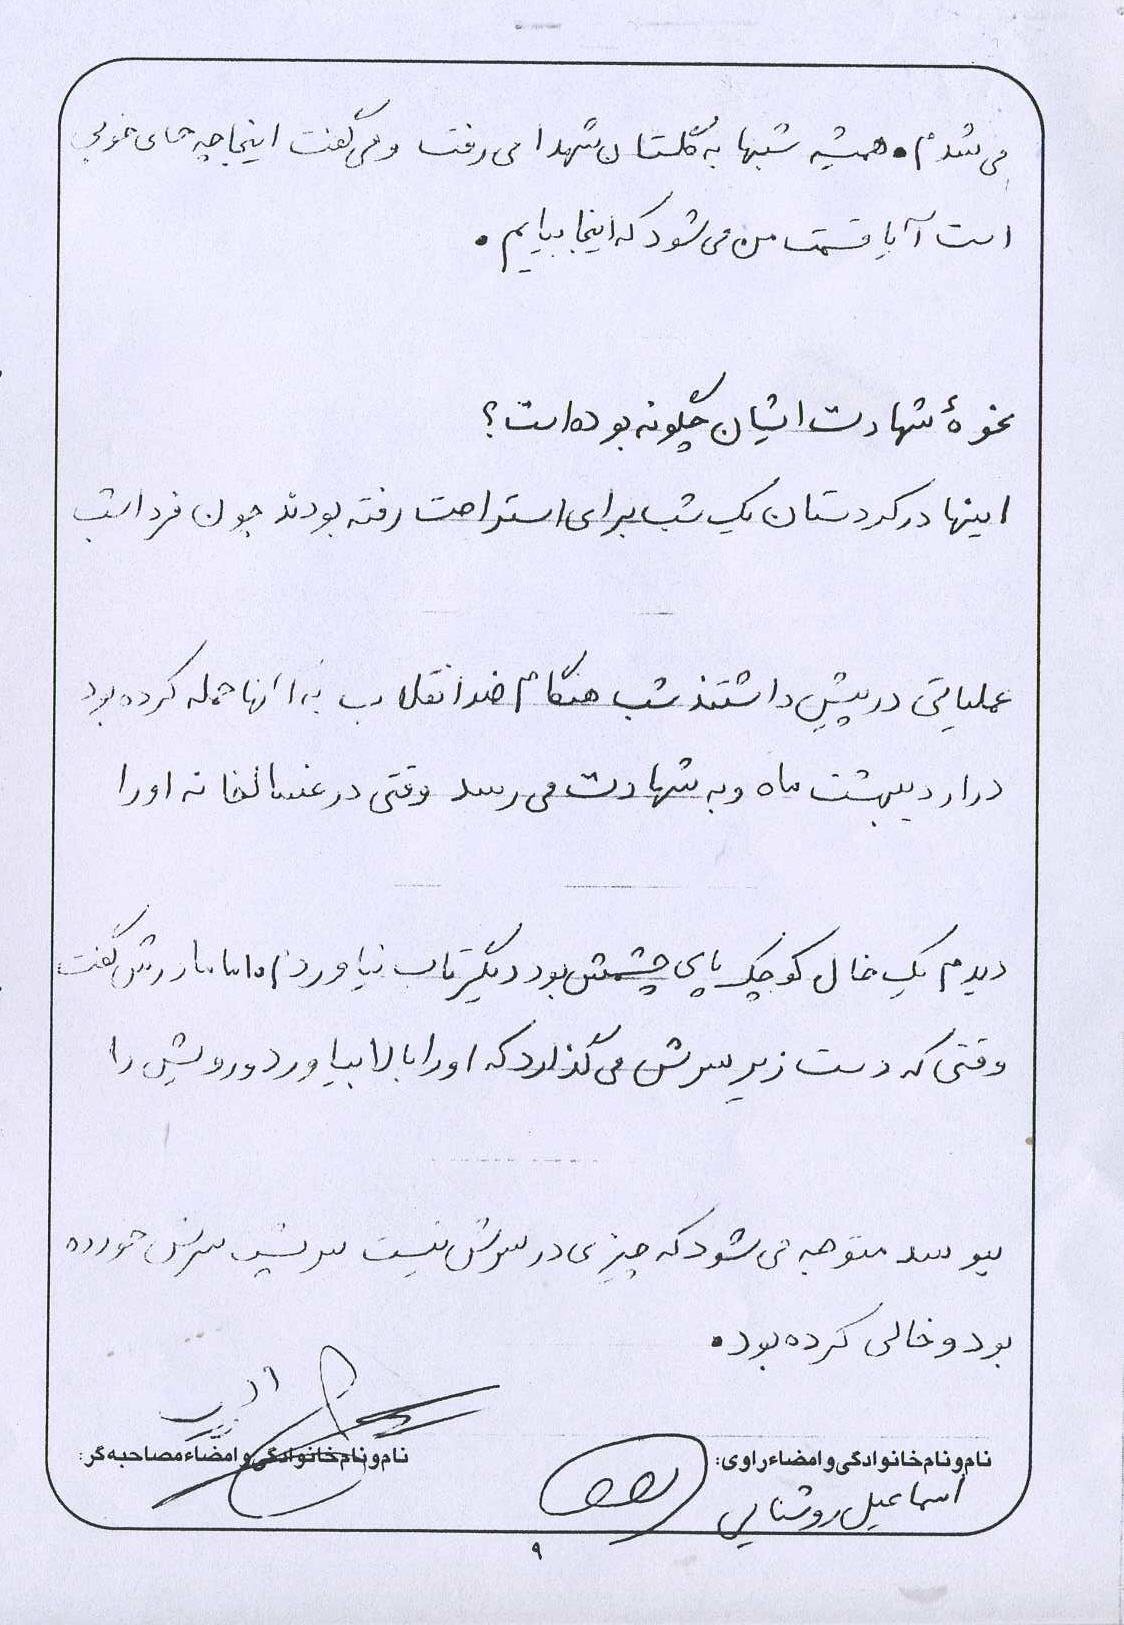 می شدم. همیشه شبها به گلستان شهدا می رفت و می گفت اینجا چه جای خوبی
است آیا قسمت من می شود که اینجا بیایم.
نحوهٔ شهادت ایشان چگونه بوده است؟
اینها در کردستان یک شب برای استراحت رفته بودند چون فردا شب
عملیاتی در پیش داشتند شب هنگام ضد انقلاب به آنها حمله کرده بود
در اردیبهشت ماه و به شهادت می رسد وقتی در غسالخانه او را
دیدم یک خال کوچک پای چشمش بود دیگر تاب نیاوردم اما مادرش گفت
وقتی که دست زیر سرش می گذارد که او را بالا بیاورد و رویش را
ببوسد متوجه می شود که چیزی در سرش نیست سرش خورده
بود و خالی کرده بود.
نام و نام خانوادگی و امضاء راوی:
نام و نام خانوادگی و امضاء مصاحبه گر:
اسماعیل روشنایی
۹